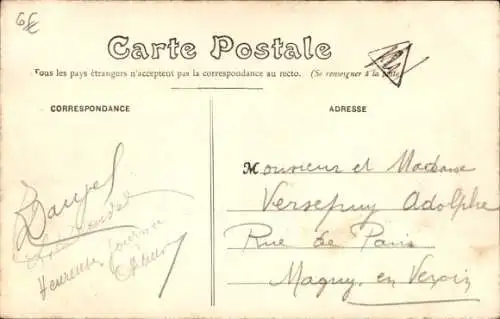 6€
Carte Postale
Tous les pays étrangers n'acceptent pas la correspondance au recto. (Se renseigner à la poste)
CORRESPONDANCE
ADRESSE
Monsieur et Madame
Versepuy Adolphe
Rue de Paris
Magny en Vexin
Heureuse